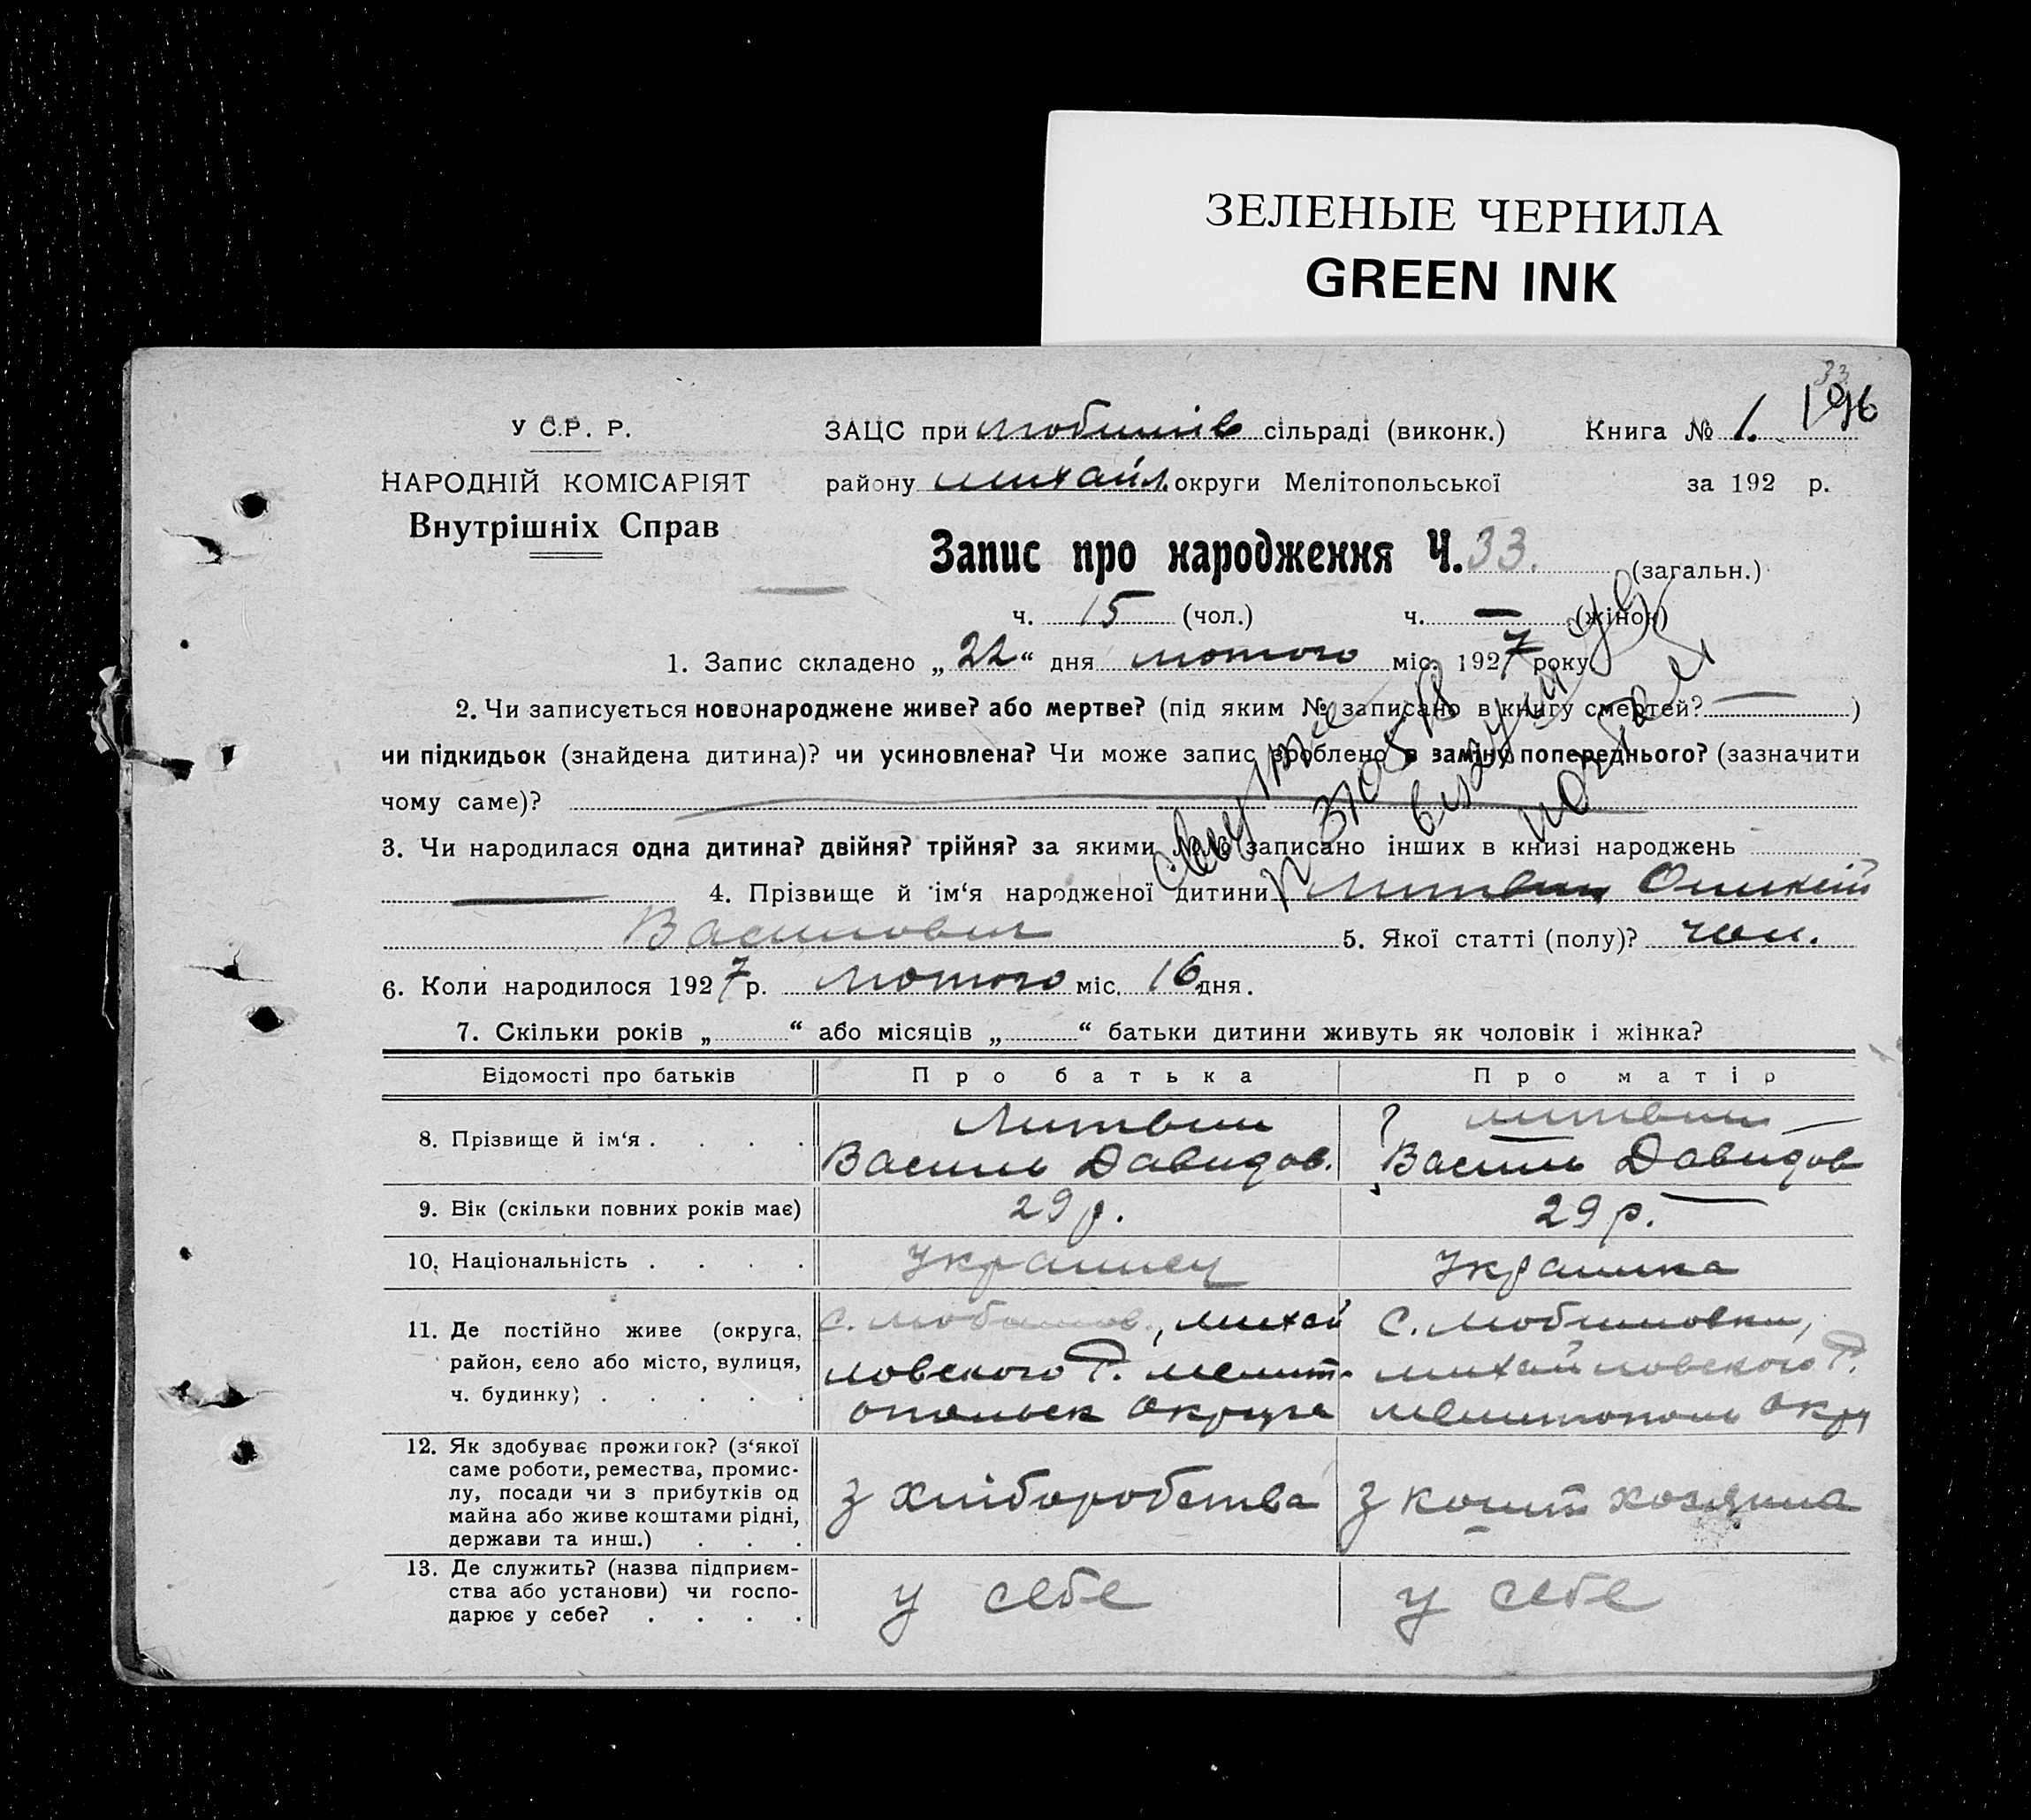 ЗЕЛЕНЫЕ ЧЕРНИЛА
GREEN INK
33
196
У С.Р. Р.
ЗАЦС при Любимів сільраді (виконк.) Книга № 1.
НАРОДНІЙ КОМІСАРІЯТ
району Михайл. округи Мелітопольської за 192 р.
Внутрішніх Справ
Запис про народження Ч. 33. (загальн.)
ч. 15 (чол.) ч. — (жінок)
1. Запис складено „22“ дня лютого міс. 1927 року
2. Чи записується новонароджене живе? або мертве? (під яким № записано в книгу смертей? — )
чи підкидьок (знайдена дитина)? чи усиновлена? Чи може запис зроблено в заміну попереднього? (зазначити
чому саме)?
3. Чи народилася одна дитина? двійня? трійня? за якими №№ записано інших в книзі народжень
— 4. Прізвище й ім‘я народженої дитини Литвин
Василович 5. Якої статті (полу)? чол.
6. Коли народилося 1927 р. лютого міс. 16 дня.
7. Скільки років „ “ або місяців „ “ батьки дитини живуть як чоловік і жінка?
Відомості про батьків Про батька Про матір
8. Прізвище й ім‘я . . . . Литвин Василь Давидов. ? Литвин — Василь Давидов
9. Вік (скільки повних років має) 29 р. 29 р.
10. Національність . . . . Украинец Украинка
11. Де постійно живе (округа, с. Любимов., Михай с. Любимовки,
район, село або місто, вулиця, ловського Р. Мелит- Михайловського Р.
ч. будинку) . . . . . опольск округа Мелитополь окру
12. Як здобуває прожиток? (з‘якої
саме роботи, ремества, промис-
лу, посади чи з прибутків од з хліборобства з кошт хозяина
майна або живе коштами рідні,
держави та инш.) . . .
13. Де служить? (назва підприєм-
ства або установи) чи госпо- у себе у себе
дарює у себе? . . . .